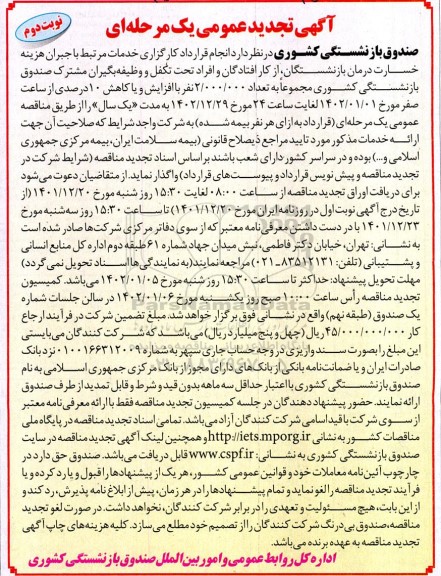 آگهی تجدید عمومی یک مرحله‌ای
نوبت دوم
صندوق بازنشستگی کشوری در نظر دارد انجام قرارداد کارگزاری خدمات مرتبط با جبران هزینه
خسارت درمان بازنشستگان، از کار افتادگان و افراد تحت تکفل و وظیفه‌بگیران مشترک صندوق
بازنشستگی کشوری مجموعاً به تعداد ۲/۰۰۰/۰۰۰ نفر با افزایش و یا کاهش ۱۰ درصدی از ساعت
صفر مورخ ۱۴۰۲/۰۱/۰۱ لغایت ساعت ۲۴ مورخ ۱۴۰۲/۱۲/۲۹ به مدت «یک سال» را از طریق مناقصه
عمومی یک مرحله‌ای (قرارداد به ازای هر نفر بیمه شده) به شرکت واجد شرایط که صلاحیت آن جهت
ارائه خدمات مذکور مورد تایید مراجع ذیصلاح قانونی (بیمه سلامت ایران، بیمه مرکزی جمهوری
اسلامی و...) بوده و در سراسر کشور دارای شعب باشند بر اساس اسناد تجدید مناقصه (شرایط شرکت در
تجدید مناقصه و پیش نویس قرارداد و پیوست‌های قرارداد) واگذار نماید. از متقاضیان دعوت می‌شود
برای دریافت اوراق تجدید مناقصه از ساعت ۰۸:۰۰ لغایت ۱۵:۳۰ روز شنبه مورخ ۱۴۰۱/۱۲/۲۰ (از
تاریخ درج آگهی نوبت اول در روزنامه ایران مورخ ۱۴۰۱/۱۲/۲۰) تا ساعت ۱۵:۳۰ روز سه‌شنبه مورخ
۱۴۰۱/۱۲/۲۳ با در دست داشتن معرفی نامه معتبر که از سوی دفاتر مرکزی شرکت‌ها صادر شده است
به نشانی: تهران، خیابان دکتر فاطمی، نبش میدان جهاد شماره ۶۱ طبقه دوم اداره کل منابع انسانی
و پشتیبانی (تلفن: ۸۳۵۱۲۱۳۱-۰۲۱) مراجعه نمایند (به نمایندگی‌ها اسناد تحویل نمی گردد)
مهلت تحویل پیشنهاد: حداکثر تا ساعت ۱۵:۳۰ روز شنبه مورخ ۱۴۰۲/۰۱/۰۵ می‌باشد. کمیسیون
تجدید مناقصه رأس ساعت ۱۰:۰۰ صبح روز یکشنبه مورخ ۱۴۰۲/۰۱/۰۶ در سالن جلسات شماره
یک صندوق (طبقه نهم) واقع در نشانی فوق برگزار خواهد شد. مبلغ تضمین شرکت در فرآیند ارجاع
کار ۴۵/۰۰۰/۰۰۰/۰۰۰ ریال (چهل و پنج میلیارد ریال) می‌باشد که شرکت کنندگان می‌بایستی
این مبلغ را بصورت سند واریزی در وجه حساب جاری سپهر به شماره ۰۱۰۰۱۶۶۳۱۲۰۰۹ نزد بانک
صادرات ایران و یا ضمانت‌نامه بانکی از بانک‌های دارای مجوز از بانک مرکزی جمهوری اسلامی به نام
صندوق بازنشستگی کشوری با اعتبار حداقل سه ماهه بدون قید و شرط و قابل تمدید از طرف صندوق
ارائه نمایند. حضور پیشنهاد دهندگان در جلسه کمیسیون تجدید مناقصه فقط با ارائه معرفی نامه معتبر
از سوی شرکت با قید اسامی شرکت کنندگان آزاد می‌باشد. تمامی اسناد تجدید مناقصه در پایگاه ملی
مناقصات کشور به نشانی http://iets.mporg.ir و همچنین لینک آگهی تجدید مناقصه در سایت
صندوق بازنشستگی کشوری به نشانی: www.cspf.ir قابل دریافت می‌باشد. صندوق حق دارد در
چارچوب آئین نامه معاملات خود و قوانین عمومی کشور، هر یک از پیشنهادها را قبول و یا رد کرده و یا
فرآیند تجدید مناقصه را لغو نماید و تمام پیشنهادها را در هر زمان، پیش از ابلاغ نامه پذیرش، رد کند و
از این بابت، هیچ مسئولیت و تعهدی را در برابر شرکت کنندگان، نخواهد داشت. در صورت لغو تجدید
مناقصه، صندوق بی‌درنگ شرکت کنندگان را از تصمیم خود مطلع می‌سازد. کلیه هزینه‌های چاپ آگهی
تجدید مناقصه به عهده برنده می‌باشد.
اداره کل روابط عمومی و امور بین الملل صندوق بازنشستگی کشوری